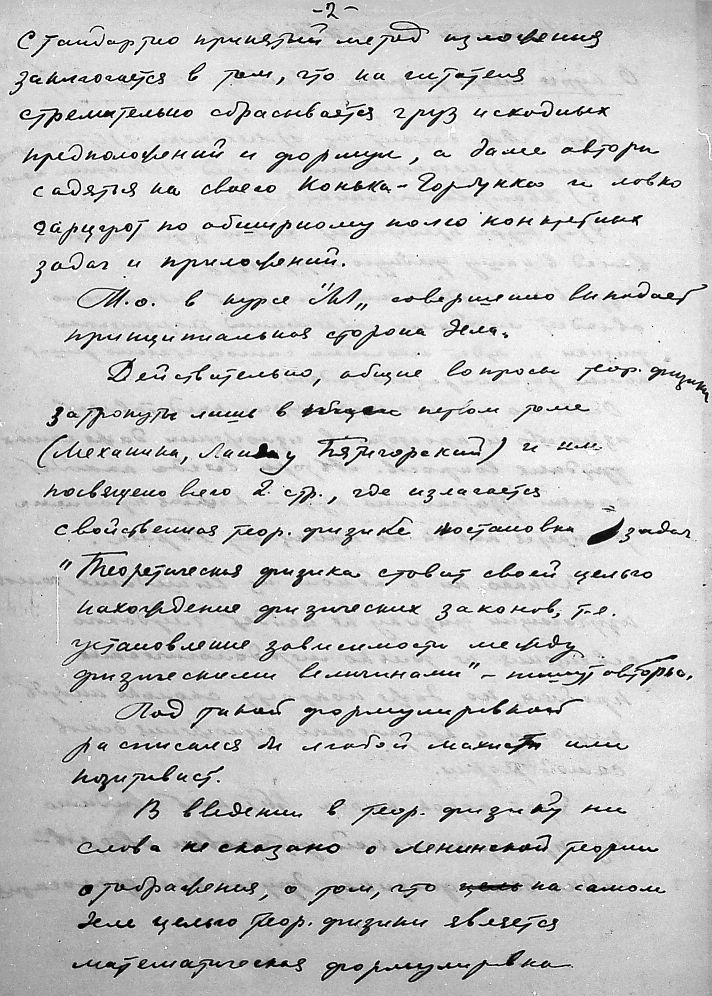 -2-
Стандартно принятый метод изложения
заключается в том, что на читателя
стремительно сбрасывается груз исходных
предположений и формул, а далее авторы
садятся на своего Конька-Горбунка и ловко
гарцуют по обширному полю конкретных
задач и приложений.
Т.о. в курсе "Л" совершенно выпадает
принципиальная сторона дела.
Действительно, общие вопросы теор. физики
затронуты лишь в первом томе
(Механика, Ландау Пятигорский) и им
посвящено всего 2 стр., где излагается
свойственная теор. физике постановка задач
"Теоретическая физика ставит своей целью
нахождение физических законов, т.е.
установление зависимости между
физическими величинами" – пишут авторы.
Под такой формулировкой
расписался бы любой махист или
позитивист.
В введении в теор. физику ни
слова не сказано о Ленинской теории
отображения, о том, что цель на самом
деле целью теор. физики является
математическая формулировка